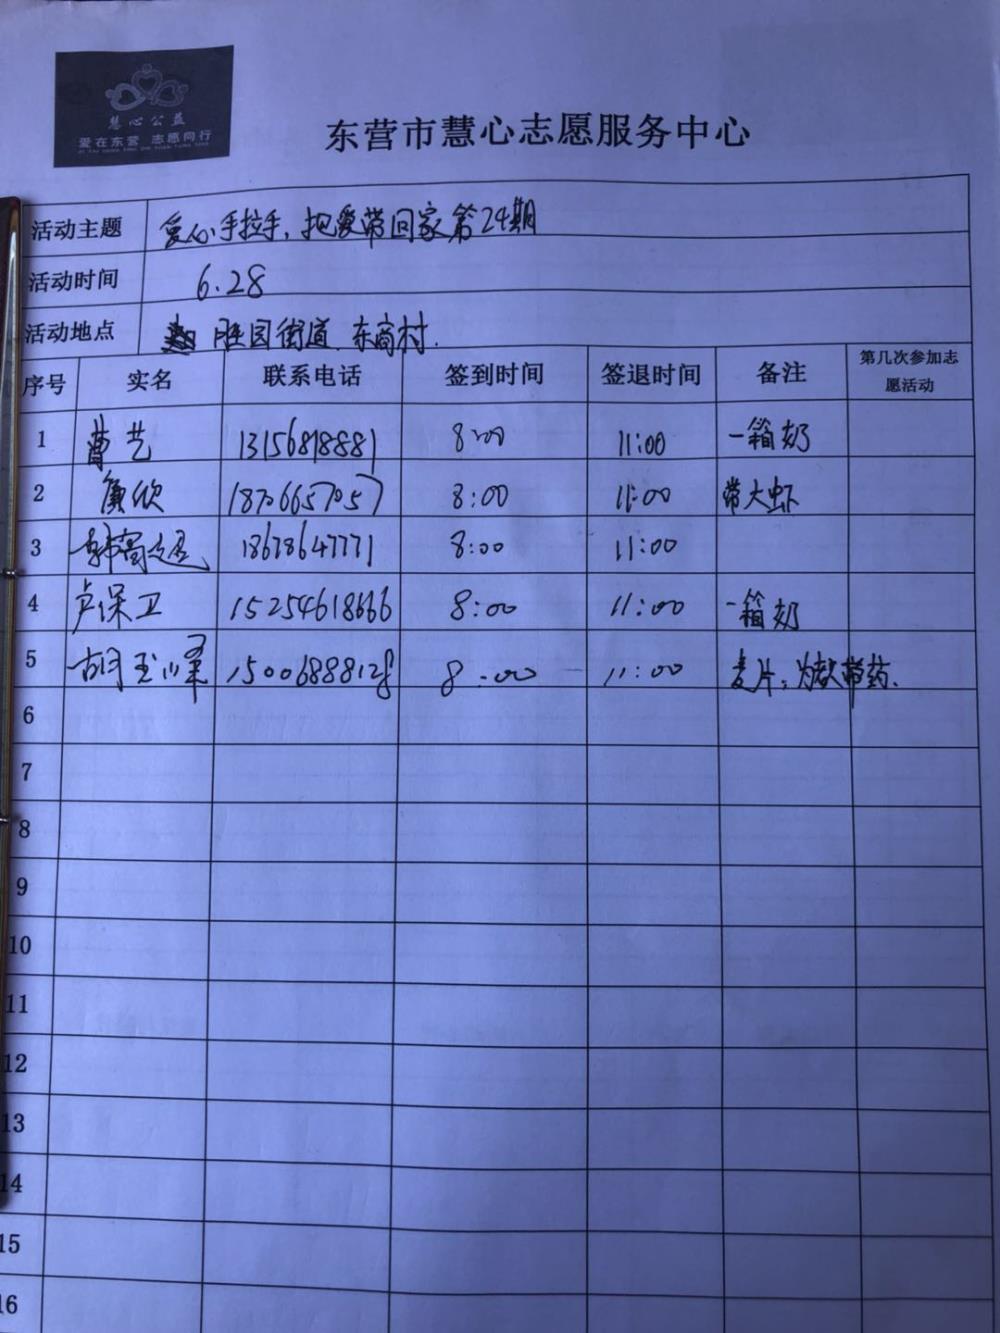 慧心公益
爱在东营 志愿同行
东营市慧心志愿服务中心
活动主题 爱心手拉手,把爱带回家第24期
活动时间 6.28
活动地点 胜园街道 东商村.
序号 实名 联系电话 签到时间 签退时间 备注 第几次参加志愿活动
1 曹艺 13156818881 8:00 11:00 一箱奶
2 欣 18706657057 8:00 11:00 带大虾
3 韩 18678647771 8:00 11:00
4 卢保卫 15254618666 8:00 11:00 一箱奶
5 胡玉峯 15006888128 8:00 11:00 麦片, 带药.
6
7
8
9
10
11
12
13
14
15
16